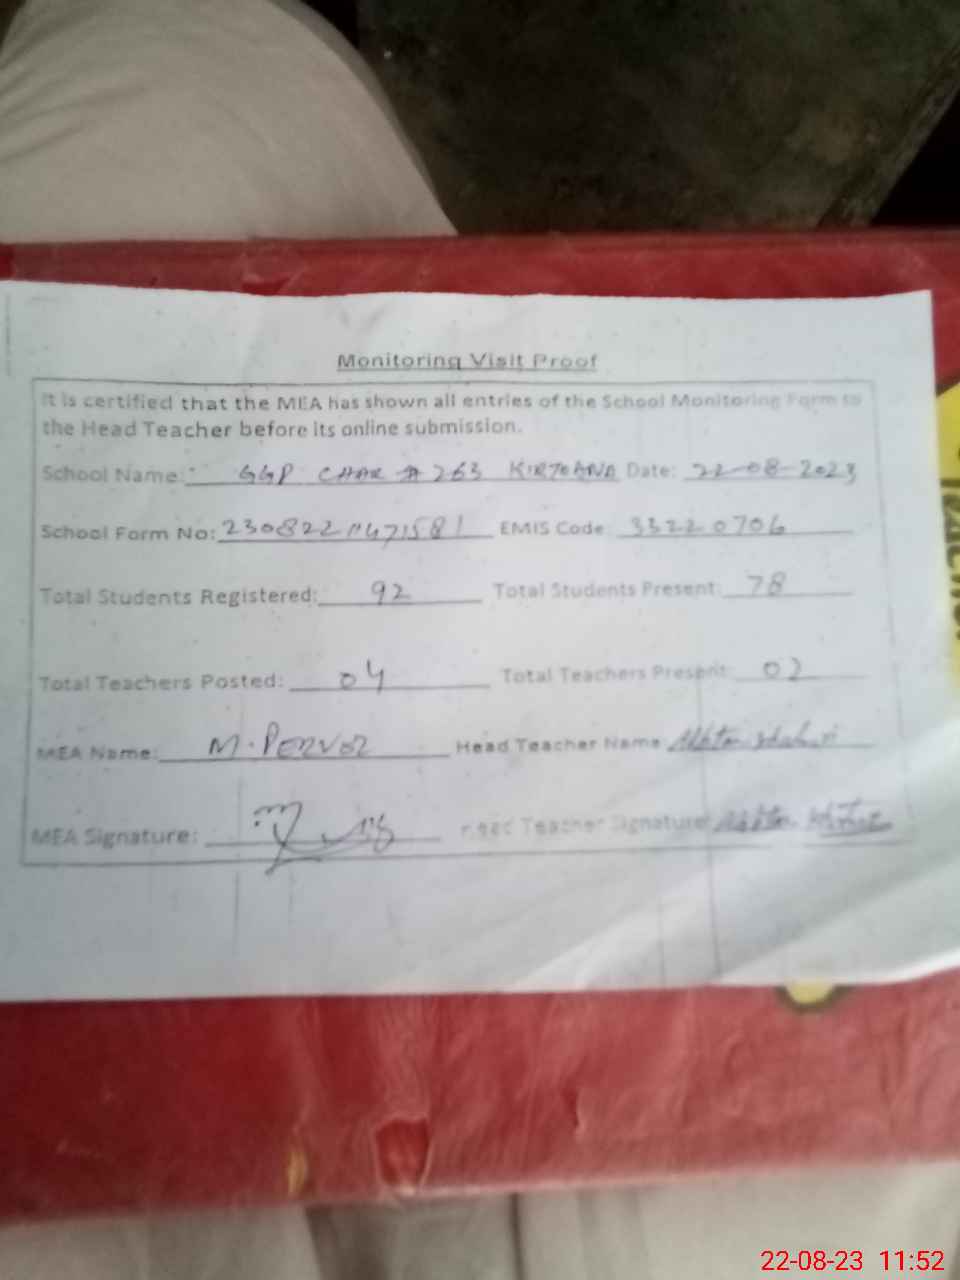 Monitoring Visit Proof
It is certified that the MEA has shown all entries of the School Monitoring Form to
the Head Teacher before its online submission.
School Name: GGP CHAK # 263 KIRTOANA Date: 22-08-2023
School Form No: 23082211471581 EMIS Code 33220706
Total Students Registered: 92 Total Students Present: 78
Total Teachers Posted: 04 Total Teachers Present: 02
MEA Name: M. PERVOZ Head Teacher Name
MEA Signature: Head Teacher Signature
22-08-23 11:52